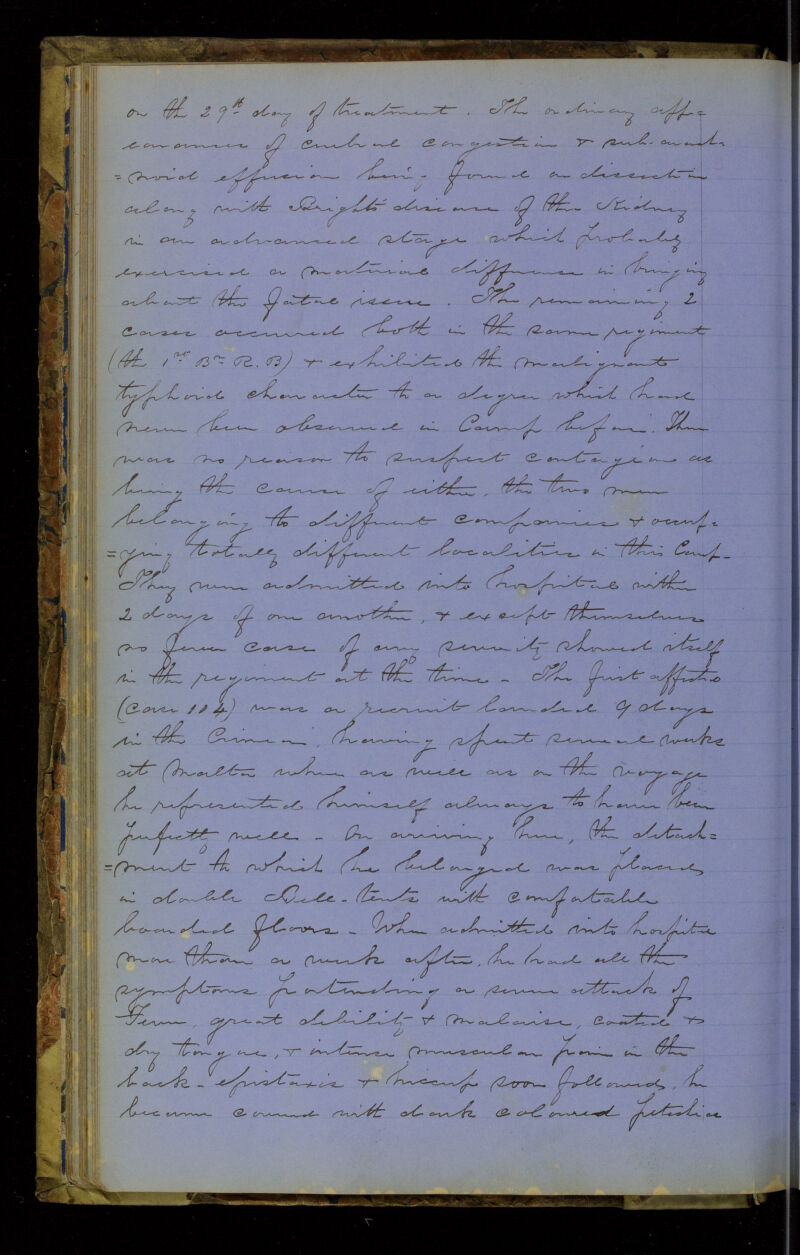 on the 29th day of treatment. The ordinary app=
earances of cerebral congestion & sub-arach-
=noid effusion being found on dissection
along with Brights disease of the Kidney
in an advanced stage which probably
exercised a material difference in bringing
about the fatal issue. The remaining 2
cases occurred both in the same regiment
(the 1st Bn R.B) & exhibited the malignant
typhoid character to a degree which had
never been observed in Camp before. There
was no reason to suspect contagion as
being the cause of either, the two men
belonging to different companies & occup=
=ying totally different localities in this Camp-
They were admitted into hospital within
2 days of one another, & except themselves
no fever case of any severity showed itself
in the regiment at the time - The first affected
(Case 104) was a recruit landed 9 days
in the Crimea, having spent several weeks
at Malta where as well as on the voyage
he represented himself always to have been
perfectly well - On arriving here, the detach=
=ment to which he belonged was placed
in double Bell-tents with comfortable
boarded floors - When admitted into hospital
more than a week after, he had all the
symptoms portending a severe attack of
Fever, great debility & malaise, coated &
dry tongue, & intense muscular pain in the
back - epistaxis & hiccup soon followed, he
became covered with dark coloured petechiae